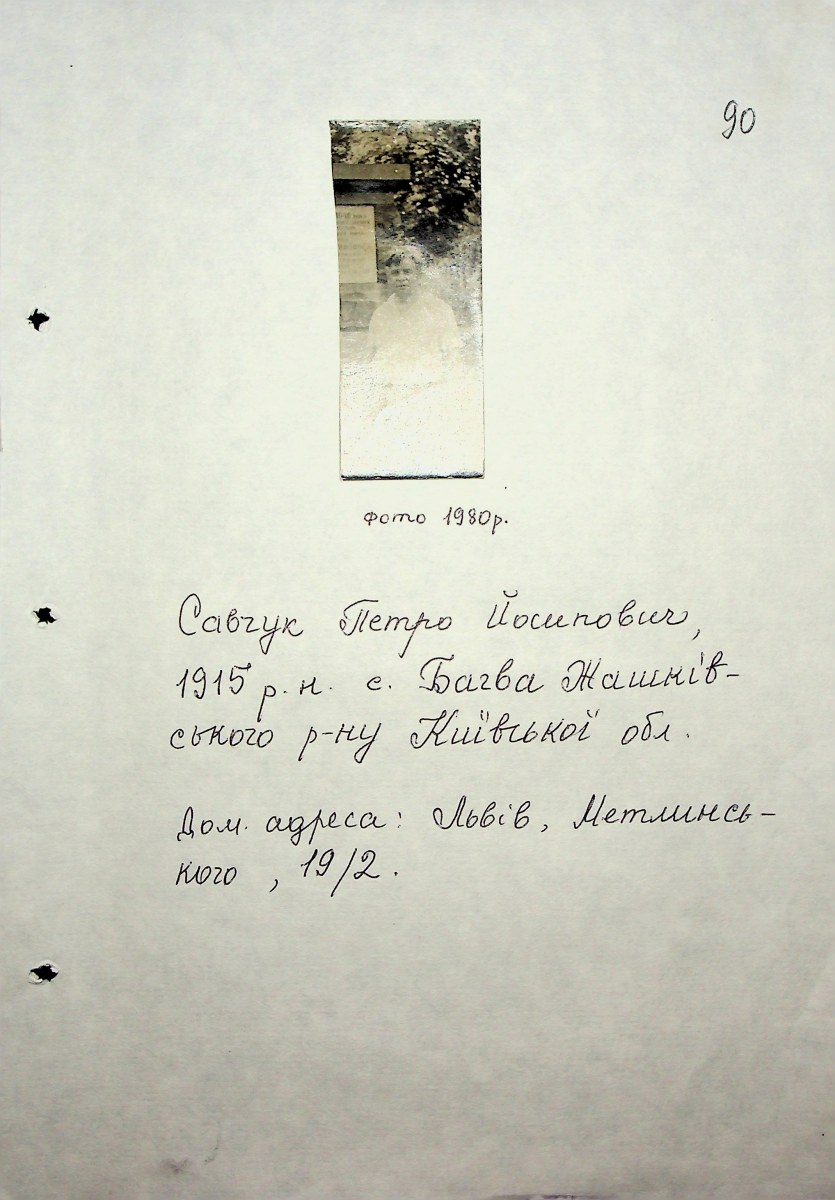 90
фото 1980р.
Савчук Петро Йосипович,
1915 р.н. с. Багва Жашків-
ського р-ну Київської обл.
Дом. адреса: Львів, Метлинсь-
кого, 19/2.